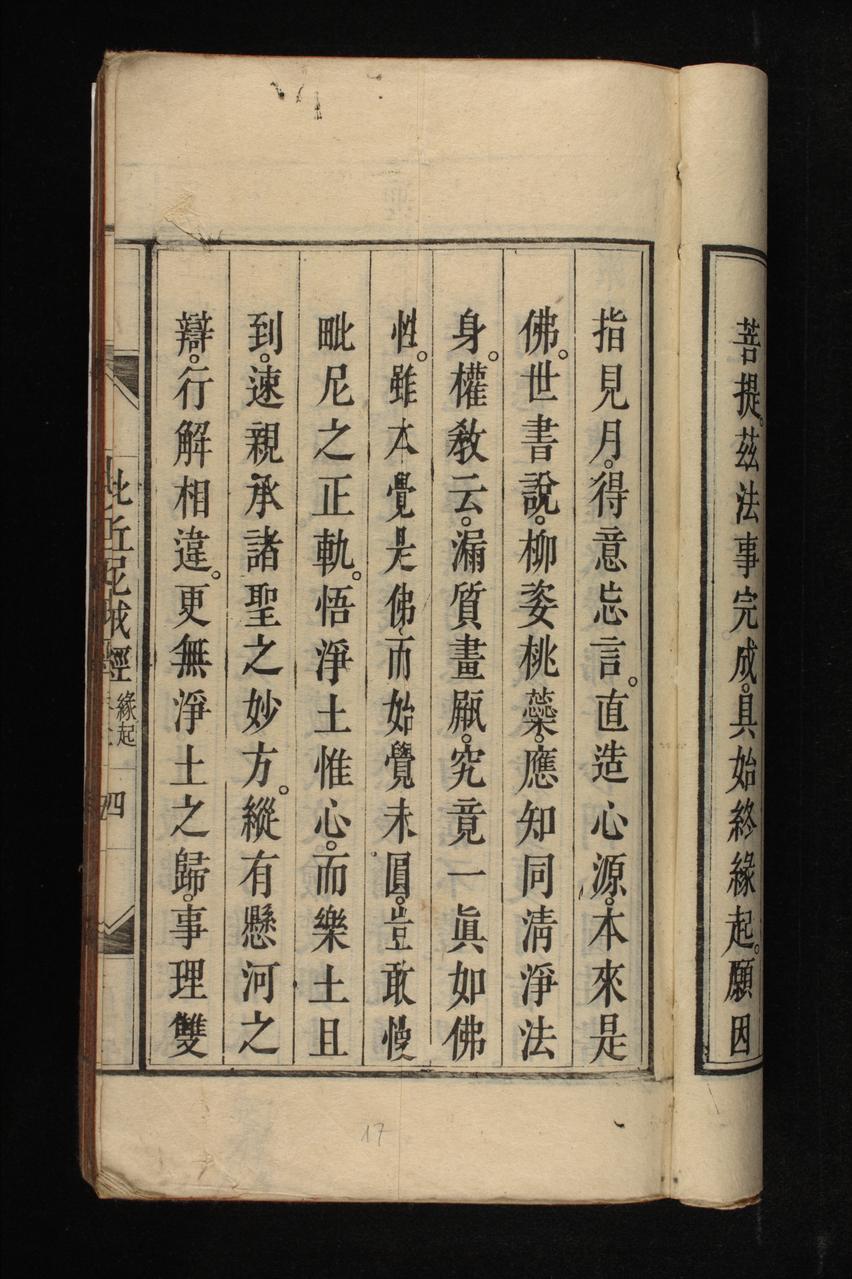 菩提。茲法事完成。具始終緣起。願因
指見月。得意忘言。直造心源。本來是
佛。世書說。柳姿桃蘂。應知同清淨法
身。權教云。漏質畫瓶。究竟一眞如佛
性。雖本覺是佛。而始覺未圓。豈敢慢
毗尼之正軌。悟淨土惟心。而樂土且
到。速親承諸聖之妙方。縱有懸河之
辯。行解相違。更無淨土之歸。事理雙
比丘尼戒經
緣起
四
17